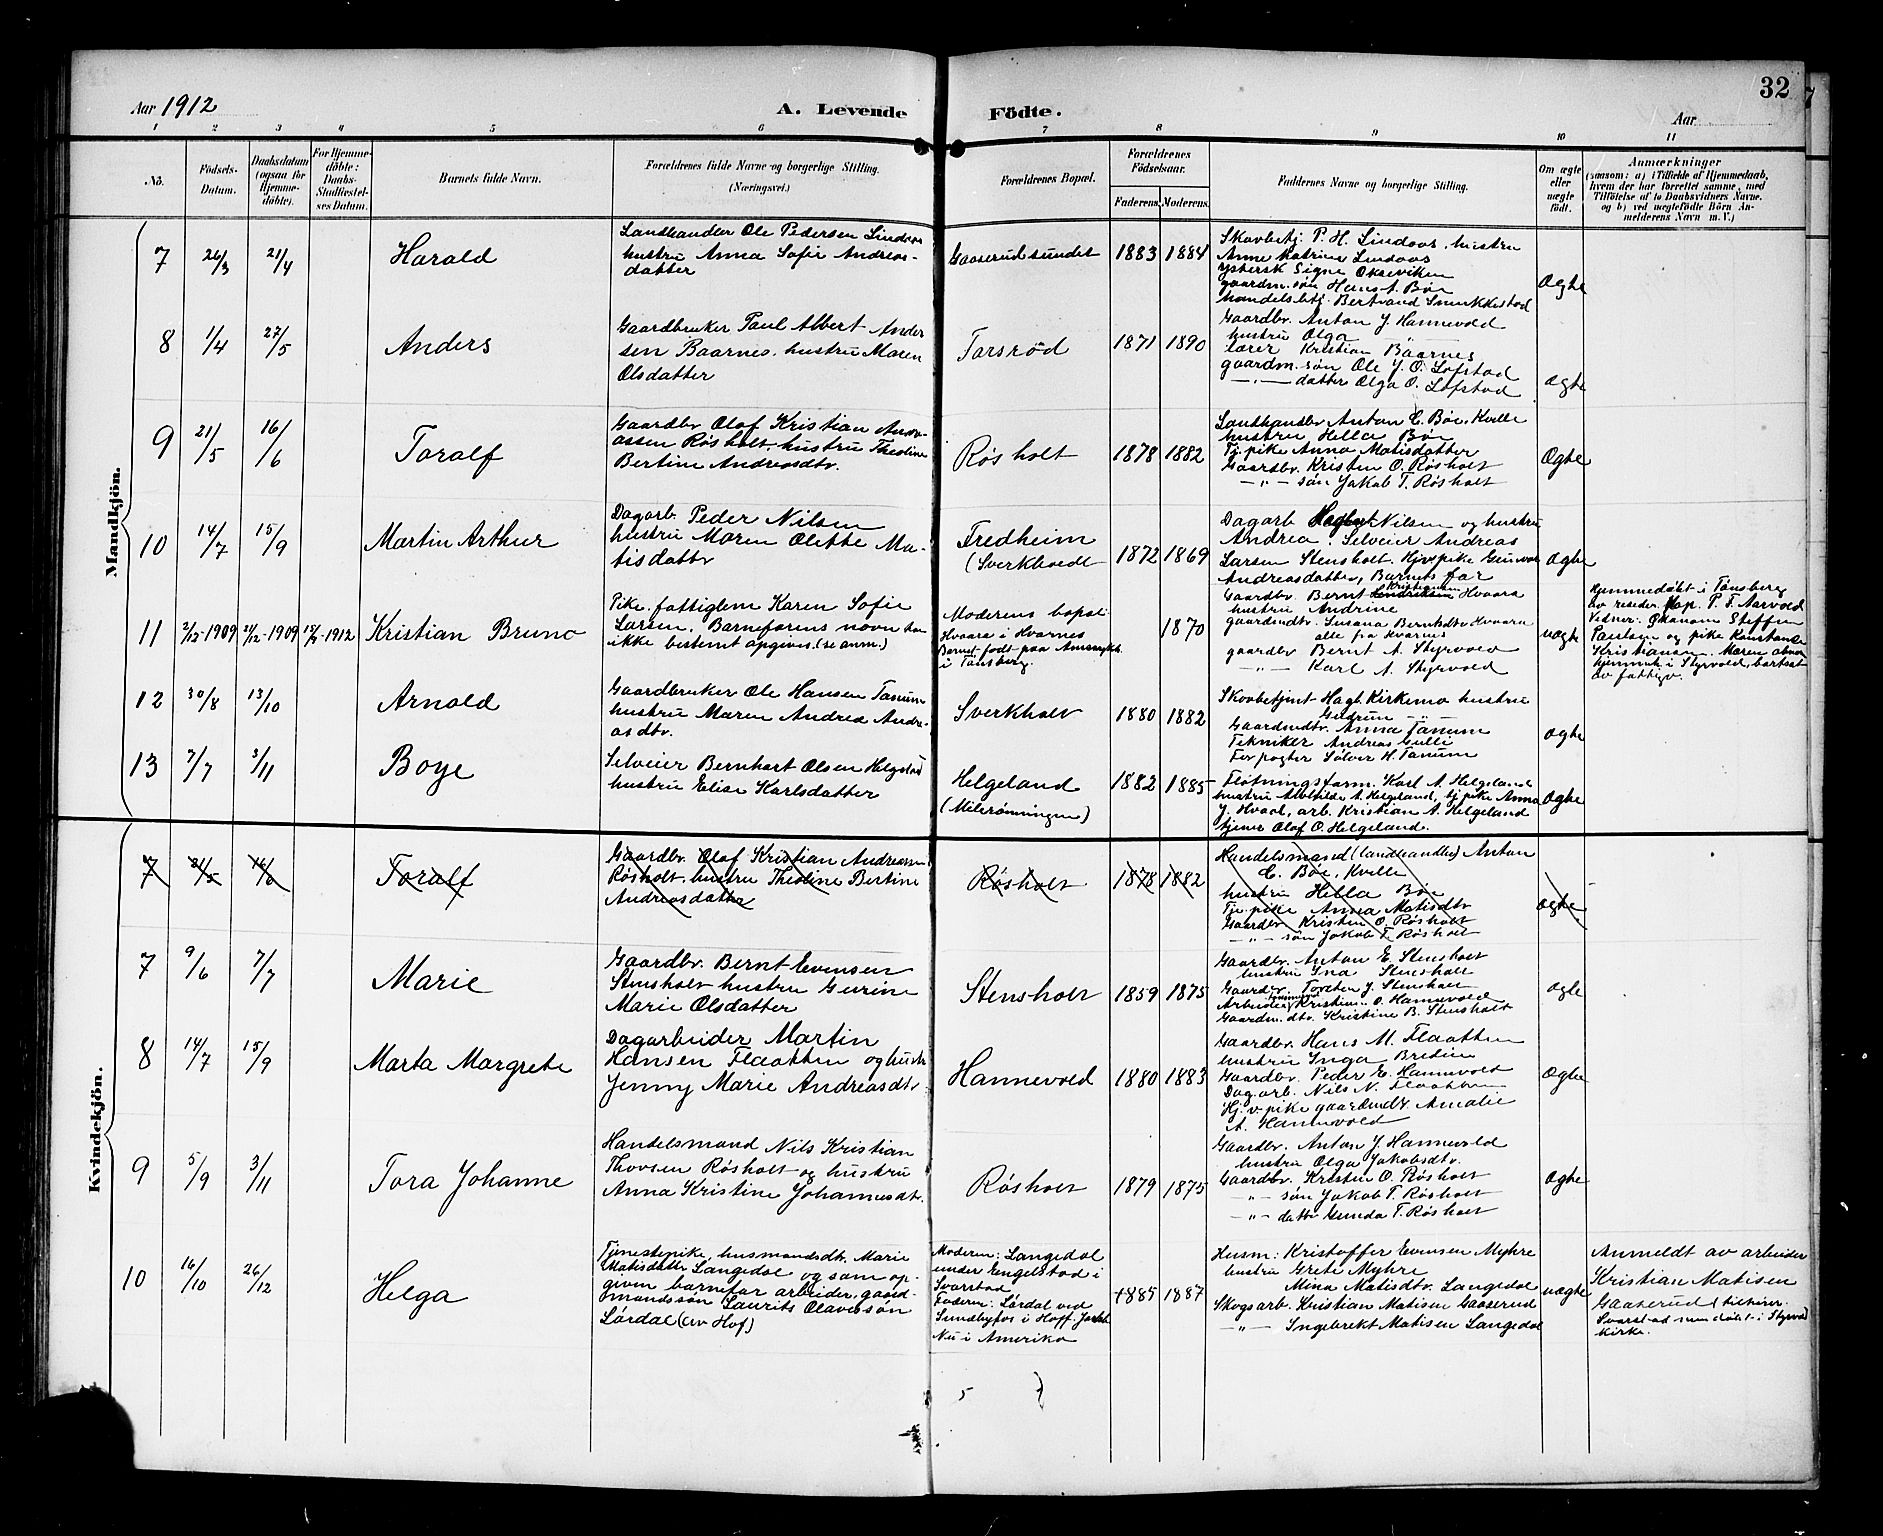 32
Aar 1912
A. Levende Födte.
Aar
1 2 3 4 5 6 7 8 9 10 11
No.
Födsels-Datum.
Daabsdatum (ogsaa for Hjemme-döbte).
For Hjemme-döbte: Daabs-Stadfæstel-ses Datum.
Barnets fulde Navn.
Forældrenes fulde Navne og borgerlige Stilling. (Næringsvei.)
Forældrenes Bopæl.
Forældrenes Födselsaar.
Faderens. Moderens.
Faddernes Navne og borgerlige Stilling.
Om ægte eller uægte födt.
Anmærkninger
(saasom: a) i Tilfælde af Hjemmedaab, hvem der har forrettet samme, med Tilföielse af to Daabsvidners Navne. og b) ved uægtefödte Börn An-melderens Navn m. V.)
Mandkjön.
7 26/3 21/4 Harald
Landhandler Ole Pedersen Lindaas
hustru Anna Sofie Andreas-
datter
Gaaserudsundet 1883 1884
Skovbetj. P. H. Lindaas, hustru
Anne Katrine Lindaas
Signe Okseviken
gaardm. søn Hans A. Bøe
handelsbetj. Bertrand Snukkestad
Ægte
8 1/4 27/5 Anders
Gaardbruker Paul Albert Ander
sen Baarnes, hustru Maren
Olsdatter
Torsrød 1871 1890
Gaardbr. Anton J. Hannevold
hustru Olga
lærer Kristian Baarnes
gaardm. søn Ole J. O. Løfstad
— „ — datter Olga O. Løfstad
Ægte
9 21/5 16/6 Toralf
Gaardbr Olaf Kristian Andre-
assen Røsholt, hustru Theoline
Bertine Andreasdtr.
Røsholt 1878 1882
Landhandler Anton C. Bøe, Kvelle
hustru Hella Bøe
Tj. pike Anna Matisdatter
Gaardbr. Kristen O. Røsholt
— „ — søn Jakob T. Røsholt
Ægte
10 14/7 15/9 Martin Arthur
Dagarb. Peder Nilsen
hustru Maren Olette Ma-
tisdattr
Fredheim
(Sverkholt 1872 1869
Dagarb Nilsen og hustru
Andrea. Selveier Andreas
Larsen Stensholt. Hj.v.pike Gunvor
Andreasdatter, Barnets far
ægte
11 2/12-1909 21/12-1909 1912 Kristian Bruno
Pike, fattiglem Karen Sofie
Larsen. Barnefarens navn kan
ikke bestemt opgives (se anm.)
Moderens bopæl:
Hvaara i Hvarnes
Barnet født paa Amtssykh.
i Tønsberg.
1870
Gaardbr. Bernt Kristiansen Hvaara
hustru Andrine
gaardmdtr. Susana Berntsdtr Hvaara
alle fra Hvarnes
gaardbr Bernt A. Styrvold
— „ — Karl A. Styrvold
uægte
Hjemmedøbt i Tønsberg
av resider. kap. P. F. Aarvold
Vidner: Økonom Steffen
Paulsen og pike Konstanse
Kristiansen. Maren
hjemme i Styrvold, bortsat
av fattigv.
12 30/8 13/10 Arnold
Gaardbruker Ole Hansen Tanum
hustru Maren Andrea Andre-
asdtr.
Sverkholt 1880 1882
Skovbetjent Hagb. Kirkemo hustru
Gudrun — „ —
Gaardmdtr. Anna Tanum
Tekniker Andreas Gulli
Forpagter Sølver H. Tanum
ægte
13 7/7 3/11 Boye
Selveier Bernhart Olsen Helgeland
hustru Elise Karlsdatter
Helgeland
(Milerønningen) 1882 1885
Fløtningsform. Karl A. Helgeland
hustru Alvhilde A. Helgeland, tj. pike Anna
J. Hvaal, arb. Kristian A. Helgeland
tjener Olaf O. Helgeland.
Ægte
Kvindekjön.
7 21/5 16/6 Toralf
Gaardbr. Olaf Kristian Andreassen
Røsholt. hustru Theoline Bertine
Andreasdatter
Røsholt 1878 1882
Handelsmand (landhandler) Anton
C. Bøe, Kvelle
hustru Hella Bøe
Tj. pike Anna Matisdtr
Gaardbr Kristen O. Røsholt
— „ — søn Jakob T. Røsholt
ægte
7 9/6 7/7 Marie
Gaardbr. Bernt Evensen
Stensholt hustru Gurine
Marie Olsdatter
Stensholt 1859 1875
Gaardbr. Anton E. Stensholt
hustru Ina Stensholt
Gaardbr. Torsten J. Stensholt
Arbeider Kristian O. Hannevold
Gaardm. dtr. Kristine B. Stensholt
ægte
8 14/7 15/9 Marta Margrete
Dagarbeider Martin
Hansen Flaatten og hustr
Jenny Marie Andreasdtr.
Hannevold 1880 1883
Gaardbr. Hans M. Flaatten
hustru Inga Bredine
Gaardbr. Peder E. Hannevold
Dagarb. Nils N. Flaatten
Hj.v. pike gaardmdtr. Amalie
A. Hannevold
Ægte
9 5/9 3/11 Tora Johanne
Handelsmand Nils Kristian
Thovsen Røsholt og hustru
Anna Kristine Johannesdtr.
Røsholt 1879 1875
Gaardbr. Anton J. Hannevold
hustru Olga Jakobsdtr.
Gaardbr. Kristen O. Røsholt
— „ — søn Jakob T. Røsholt
— „ — dattr Gunda T. Røsholt
Ægte
10 16/10 26/12 Helga
Tjenestepike, husmandsdtr. Marie
Matisdatter Langedal og som op-
given barnefar arbeider, gaard-
mandssøn Laurits Olavessøn
Lørdal (av Hof)
Moderen: Langedal
under Engelstad i
Svarstad
Faderen: Lørdal ved
Sundbyfos i Hoff. Jarlsb.
Nu i Amerika
1885 1887
Husm: Kristoffer Evensen Myhre
hustru Grete Myhre
Mina Matisdtr. Langedal
Skogsarb. Kristian Matisen Gaaserud
— „ — Ingebrekt Matisen Langedal
uægte
Anmeldt av arbeider
Kristian Matisen
Gaaserud (tilhører
Svarstad men døbt i Styrvold
kirke.